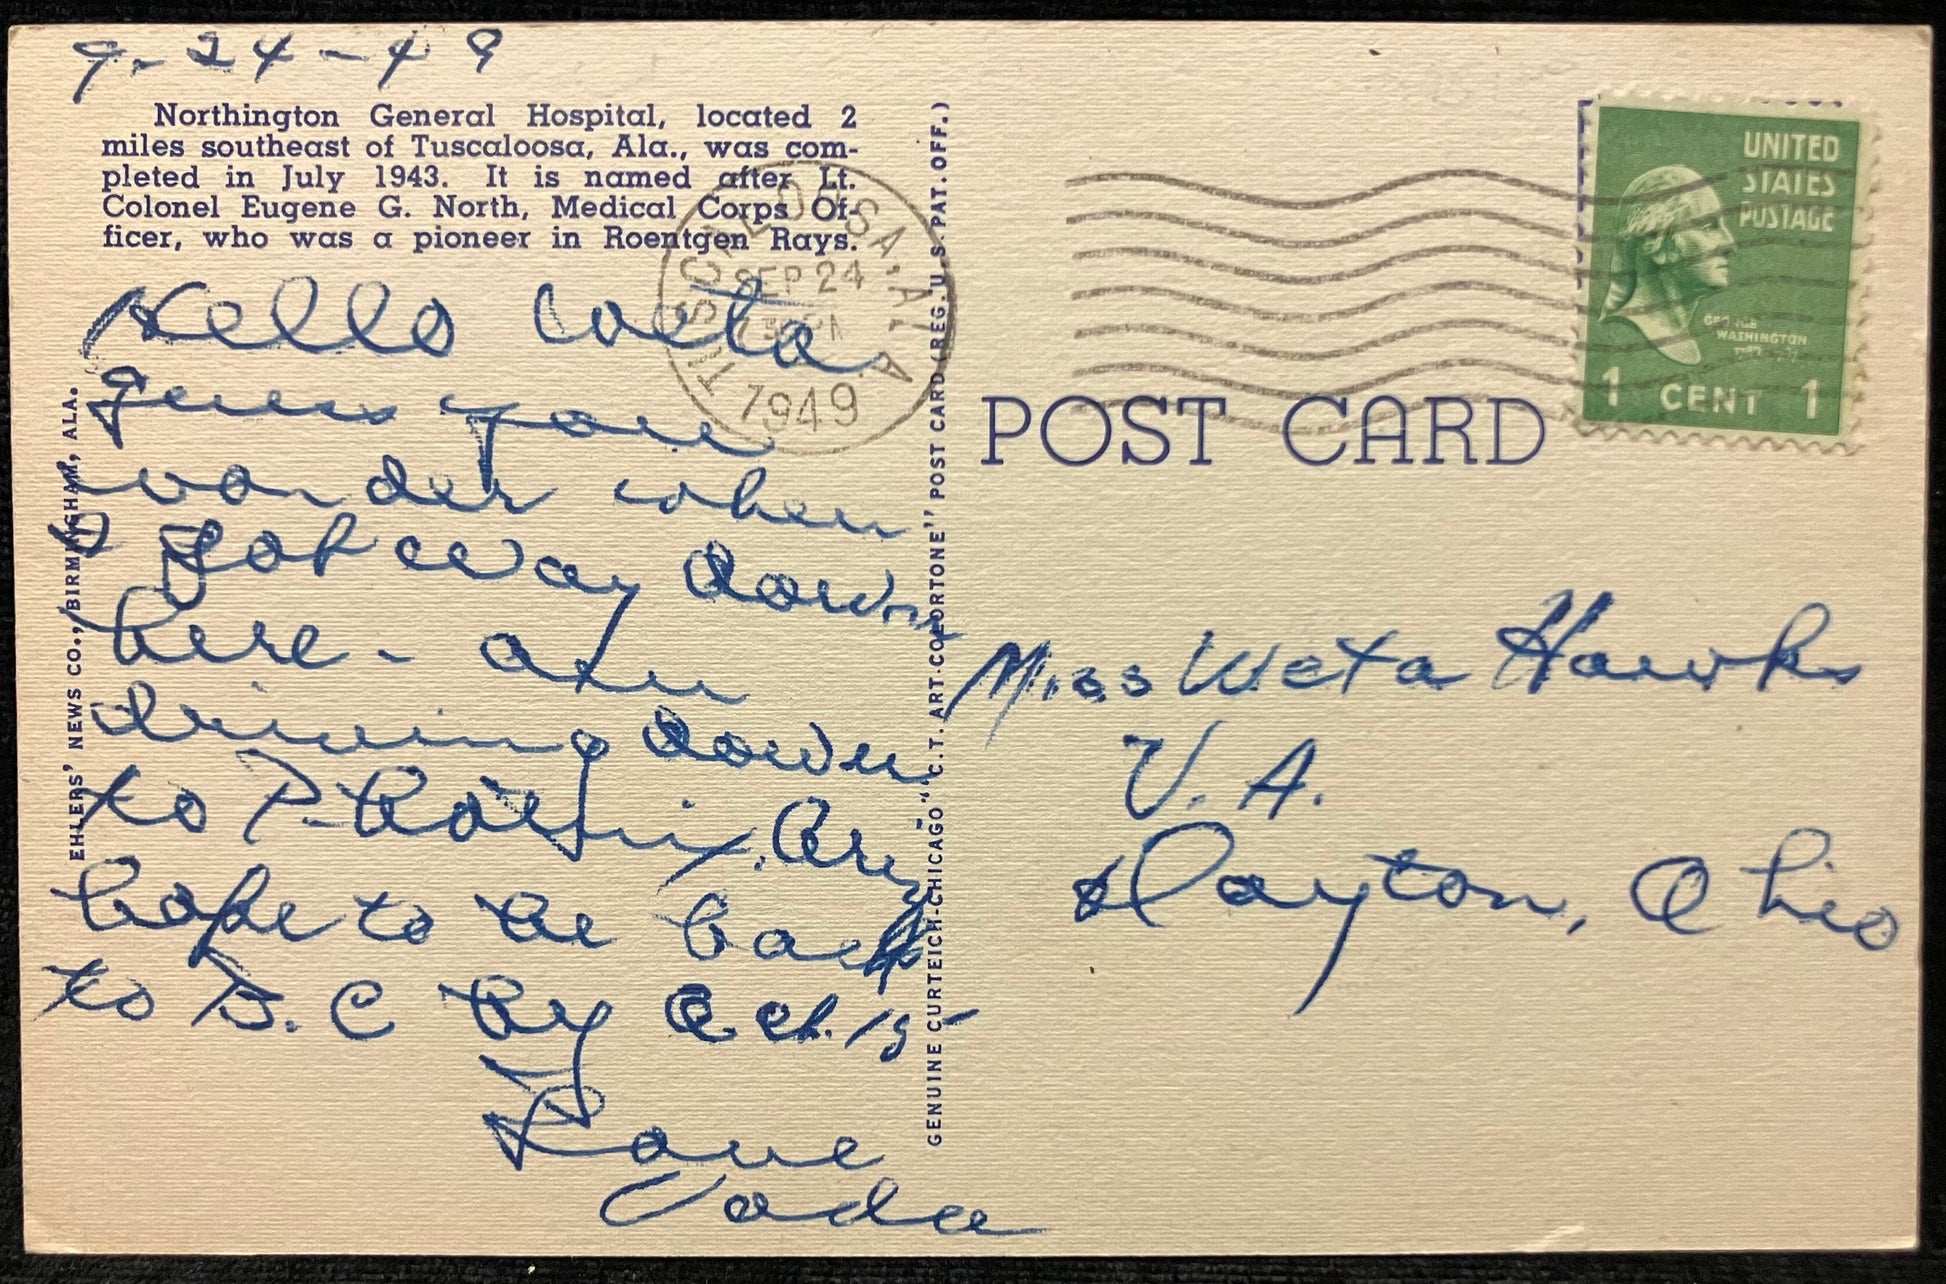 9-24-49
Northington General Hospital, located 2
miles southeast of Tuscaloosa, Ala., was com-
pleted in July 1943. It is named after Lt.
Colonel Eugene G. North, Medical Corps Of-
ficer, who was a pioneer in Roentgen Rays.
Hello Weta
guess you
wonder when
I got way down
here - am
driving down
to Phoenix, Ariz
hope to be back
to D.C by Oct. 15
Love
Vada
EHLERS' NEWS CO., BIRMINGHAM, ALA.
GENUINE CURTEICH-CHICAGO "C.T. ART-COLORTONE" POST CARD (REG. U.S. PAT. OFF.)
TUSCALOOSA, ALA.
SEP 24
PM
1949
UNITED
STATES
POSTAGE
GEORGE
WASHINGTON
1 CENT 1
POST CARD
Miss Weta Hawks
V. A.
Dayton, Ohio